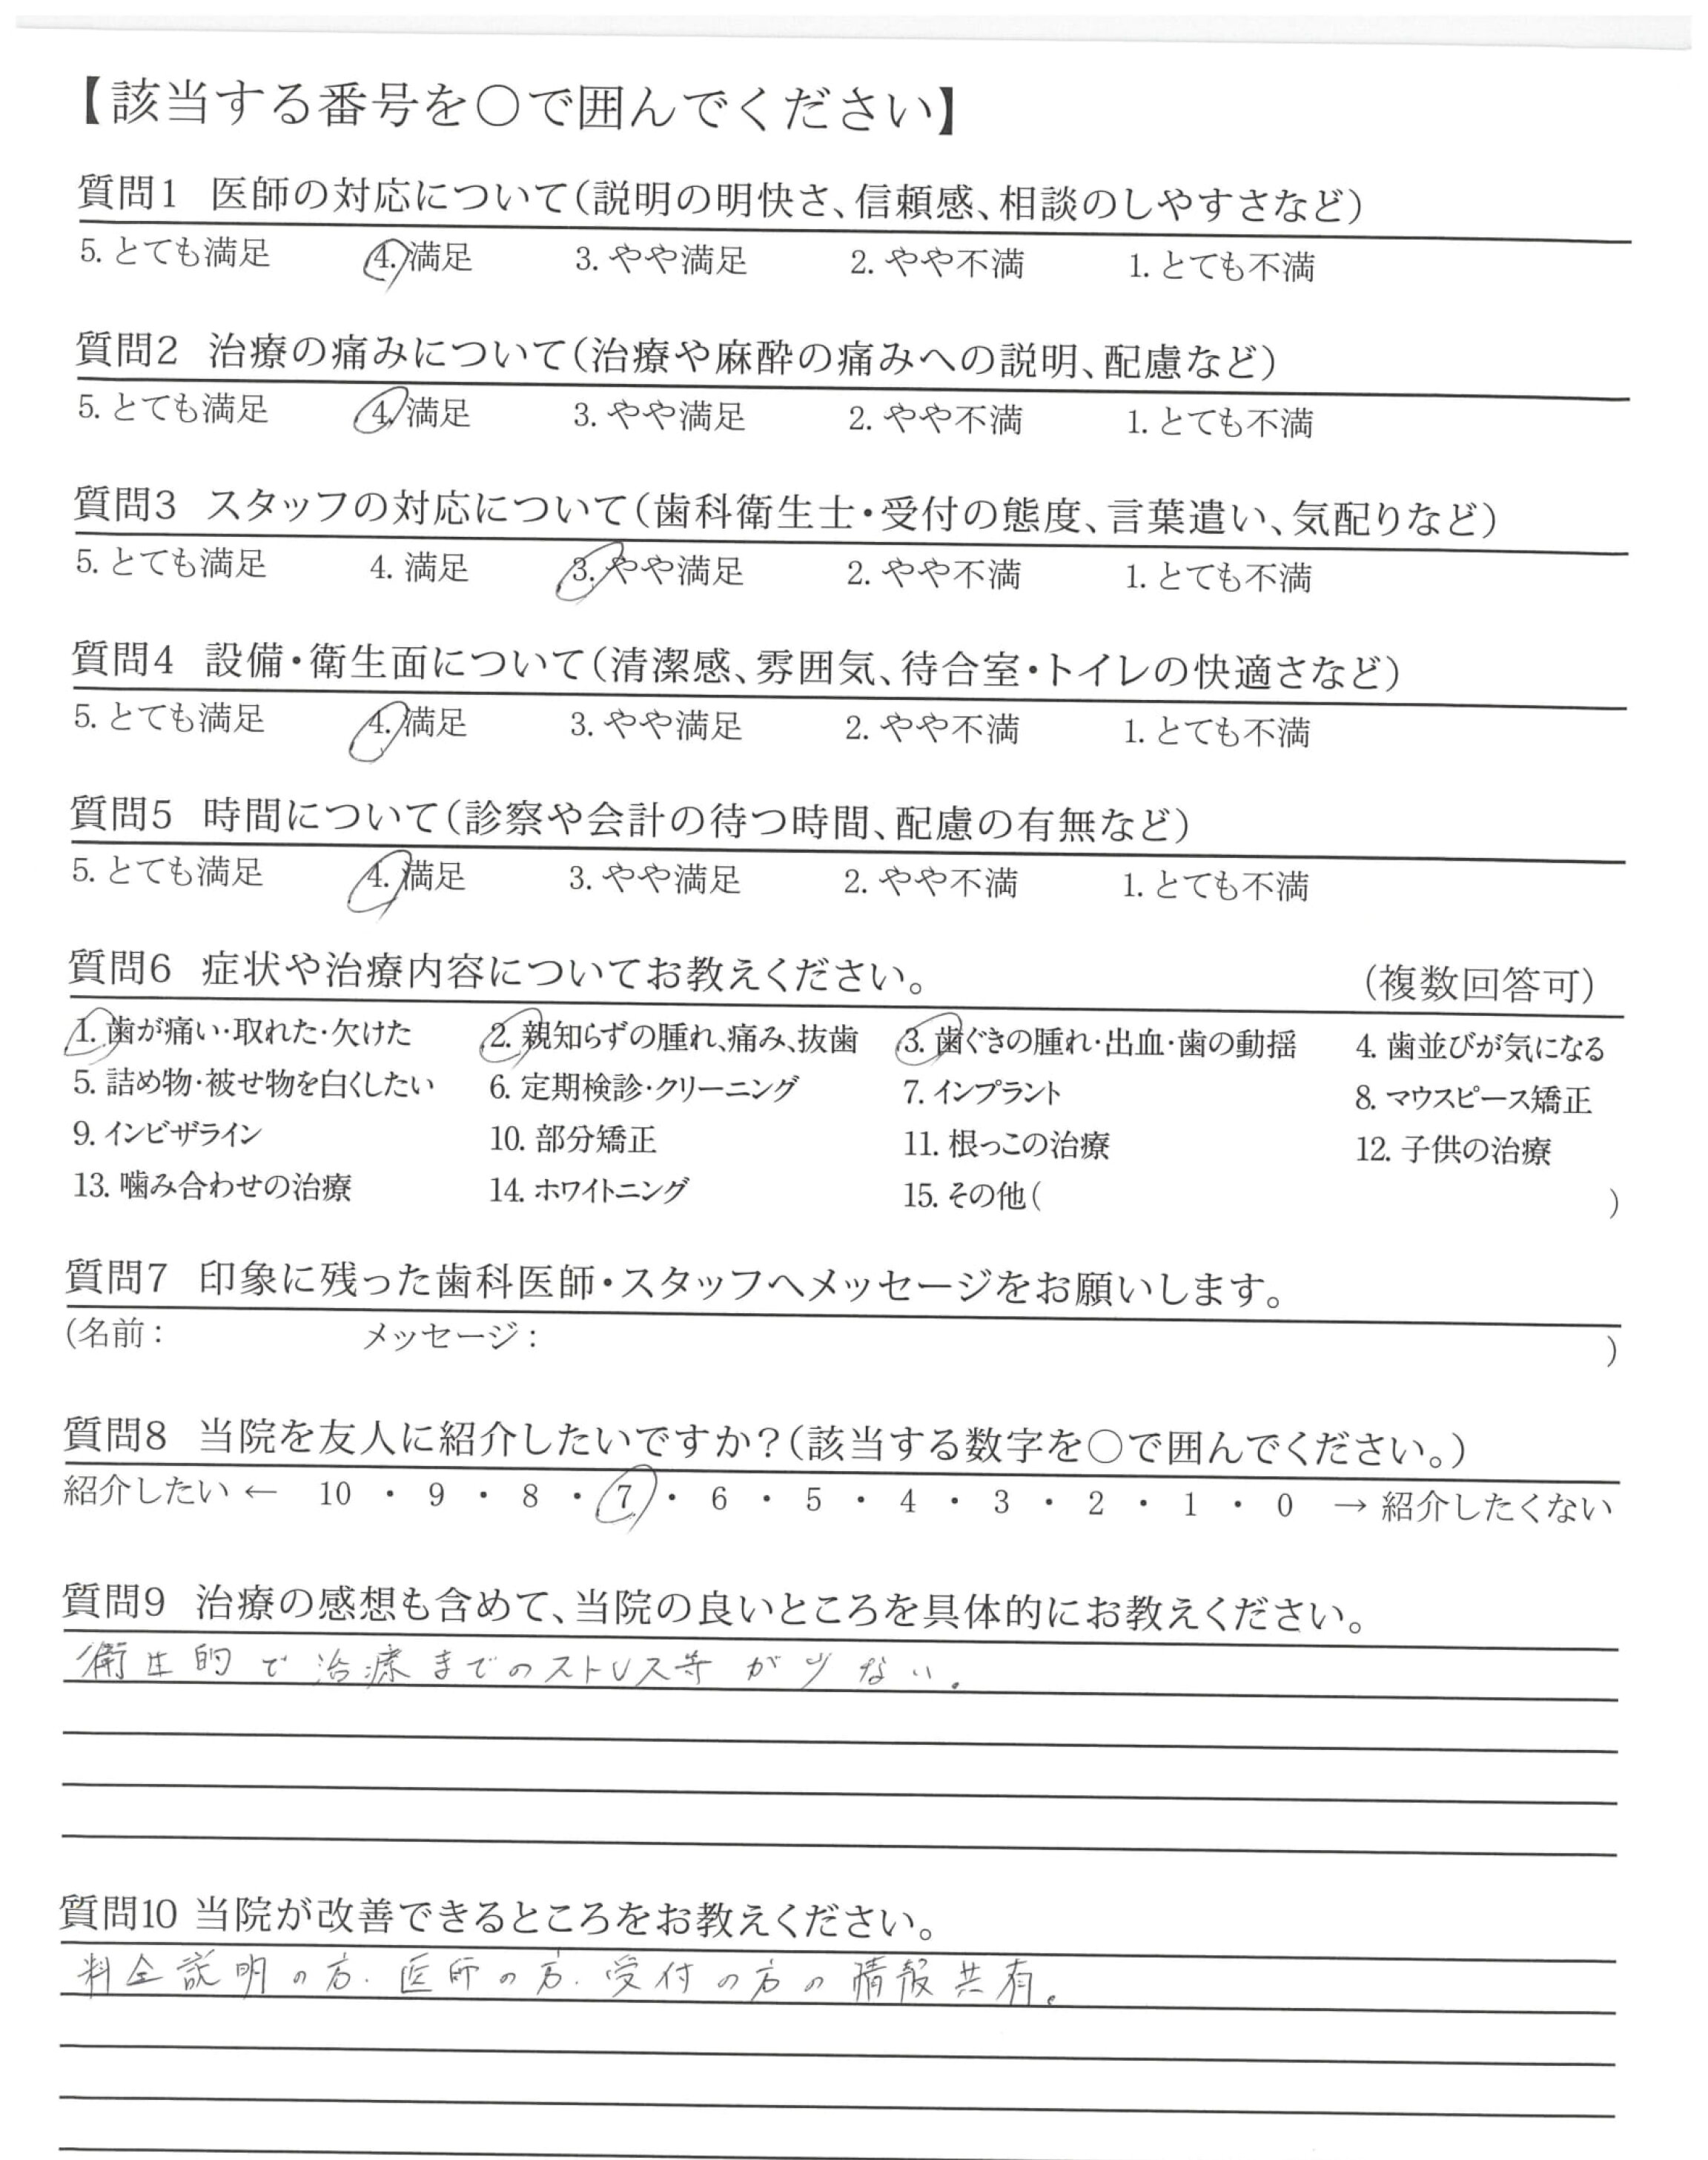 【該当する番号を〇で囲んでください】
質問1 医師の対応について(説明の明快さ、信頼感、相談のしやすさなど)
5. とても満足 4. 満足 3. やや満足 2. やや不満 1. とても不満
質問2 治療の痛みについて(治療や麻酔の痛みへの説明、配慮など)
5. とても満足 4. 満足 3. やや満足 2. やや不満 1. とても不満
質問3 スタッフの対応について(歯科衛生士・受付の態度、言葉遣い、気配りなど)
5. とても満足 4. 満足 3. やや満足 2. やや不満 1. とても不満
質問4 設備・衛生面について(清潔感、雰囲気、待合室・トイレの快適さなど)
5. とても満足 4. 満足 3. やや満足 2. やや不満 1. とても不満
質問5 時間について(診察や会計の待つ時間、配慮の有無など)
5. とても満足 4. 満足 3. やや満足 2. やや不満 1. とても不満
質問6 症状や治療内容についてお教えください。 (複数回答可)
1. 歯が痛い・取れた・欠けた 2. 親知らずの腫れ、痛み、抜歯 3. 歯ぐきの腫れ・出血・歯の動揺 4. 歯並びが気になる
5. 詰め物・被せ物を白くしたい 6. 定期検診・クリーニング 7. インプラント 8. マウスピース矯正
9. インビザライン 10. 部分矯正 11. 根っこの治療 12. 子供の治療
13. 噛み合わせの治療 14. ホワイトニング 15. その他( )
質問7 印象に残った歯科医師・スタッフへメッセージをお願いします。
(名前: メッセージ: )
質問8 当院を友人に紹介したいですか?(該当する数字を〇で囲んでください。)
紹介したい ← 10 ・ 9 ・ 8 ・ 7 ・ 6 ・ 5 ・ 4 ・ 3 ・ 2 ・ 1 ・ 0 → 紹介したくない
質問9 治療の感想も含めて、当院の良いところを具体的にお教えください。
衛生的で治療までのストレス等が少ない。
質問10 当院が改善できるところをお教えください。
料金説明の方.医師の方.受付の方の情報共有。